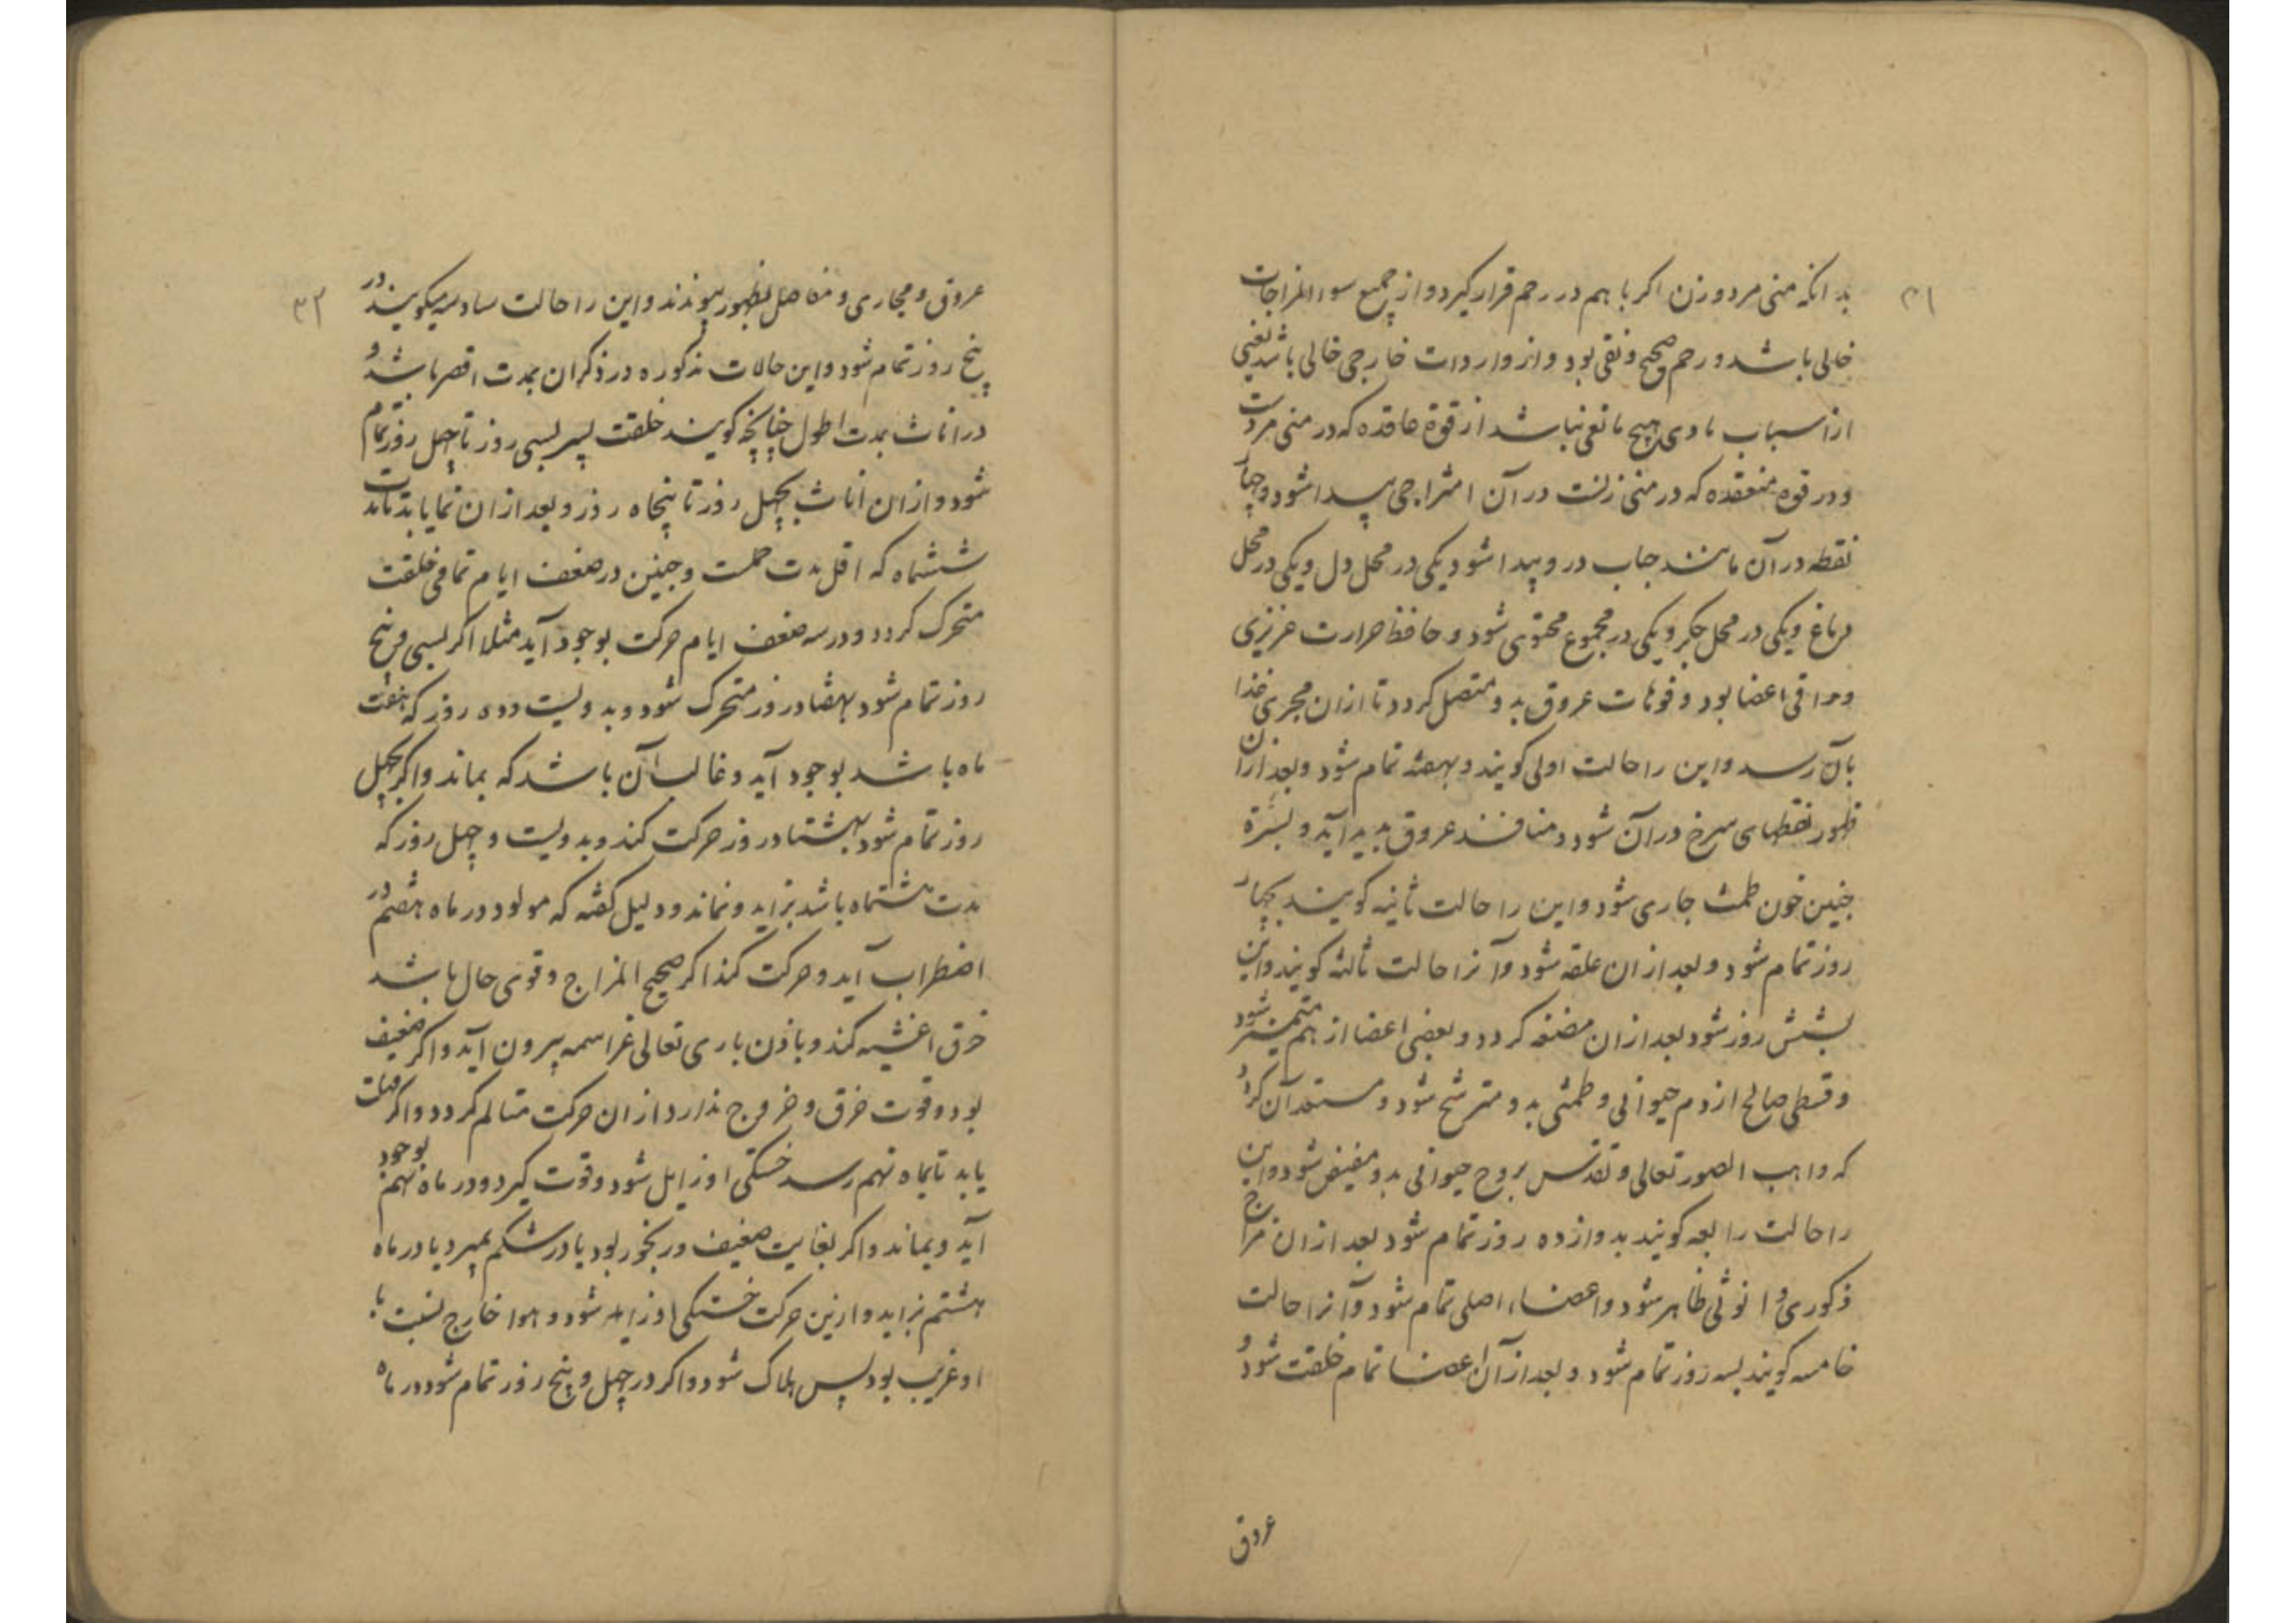 ۳۱
بدانکه منی مرد و زن اکر باهم در رحم قرار کیرد و از جمیع سوء المزاجات
خالی باشد و رحم صحیح و نقی بود و از واردات خارجی خالی باشد یعنی
از اسباب بادی هیچ مانعی نباشد از قوة عاقده که در منی مردست
و در قوه منعقده که در منی زنست در آن امتزاجی پیدا شود و چهار
نقطه در آن مانند حباب در و پیدا شود یکی در محل دل و یکی در محل
دماغ و یکی در محل جکر و یکی در مجموع محتوی شود و حافظ حرارت عزیزی
و مراقی اعضا بود و فوهات عروق بدو متصل کردد تا از ان مجری غذا
بآن رسد و این را حالت اولی کویند و بهفته تمام شود و بعد از ان
ظهور نقطهای سرخ در آن شود و منافذ عروق پدید آید و بسرة
جنین خون طمث جاری شود و این را حالت ثانیه کویند بچهار
روز تمام شود و بعد از ان علقه شود و آنرا حالت ثالثه کویند و این
بشش روز شود بعد از ان مضغه کردد و بعضی اعضا از هم متمیز شود
و قسطی صالح از دم حیوانی و طمثی بدو مترشح شود و مستعد آن کردد
که واهب الصور تعالی و تقدس روح حیوانی بدو مفیض شود و این
را حالت رابعه کویند بدوازده روز تمام شود بعد از ان مزاج
ذکوری و انوثی ظاهر شود و اعضاء اصلی تمام شود و آنرا حالت
خامسه کویند بسه روز تمام شود و بعد از آن اعضا تمام خلقت شود و
عروق
۳۲
عروق و مجاری و مفاصل بظهور پیوندند و این را حالت سادسه میکویند در
پنج روز تمام شود و این حالات مذکوره در ذکران بمدت اقصر باشد و
در اناث بمدت اطول چنانچه کویند خلقت پسر بسی روز تا چهل روز تمام
شود و از ان اناث بچهل روز تا پنجاه روز و بعد از ان نما یابد تا مدت
ششماه که اقل مدت حملست و جنین در ضعف ایام تمامی خلقت
متحرک کردد و در سه ضعف ایام حرکت بوجود آید مثلا اکر بسی و پنج
روز تمام شود بهفتاد روز متحرک شود و بدویست و ده روز که هفت
ماه باشد بوجود آید و غالب آن باشد که بماند و اکر بچهل
روز تمام شود بهشتاد روز حرکت کند و بدویست و چهل روز که
مدت هشتماه باشد بزاید و نماند و دلیل کفته که مولود در ماه هفتم در
اضطراب آید و حرکت کند اکر صحیح المزاج و قوی حال باشد
خرق اغشیه کند و باذن باری تعالی عز اسمه بیرون آید و اکر ضعیف
بود و قوت خرق و خروج ندارد از ان حرکت متالم کردد و اکر مهلت
یابد تا بماه نهم رسد خستکی او زایل شود و قوت کیرد و در ماه نهم بوجود
آید و بماند و اکر بغایت ضعیف و رنجور بود یا در شکم بمیرد یا در ماه
هشتم بزاید و ازین حرکت خستکی او زیاده شود و هوا خارج نسبت با
او غریب بود پس هلاک شود و اکر در چهل و پنج روز تمام شود در ماه